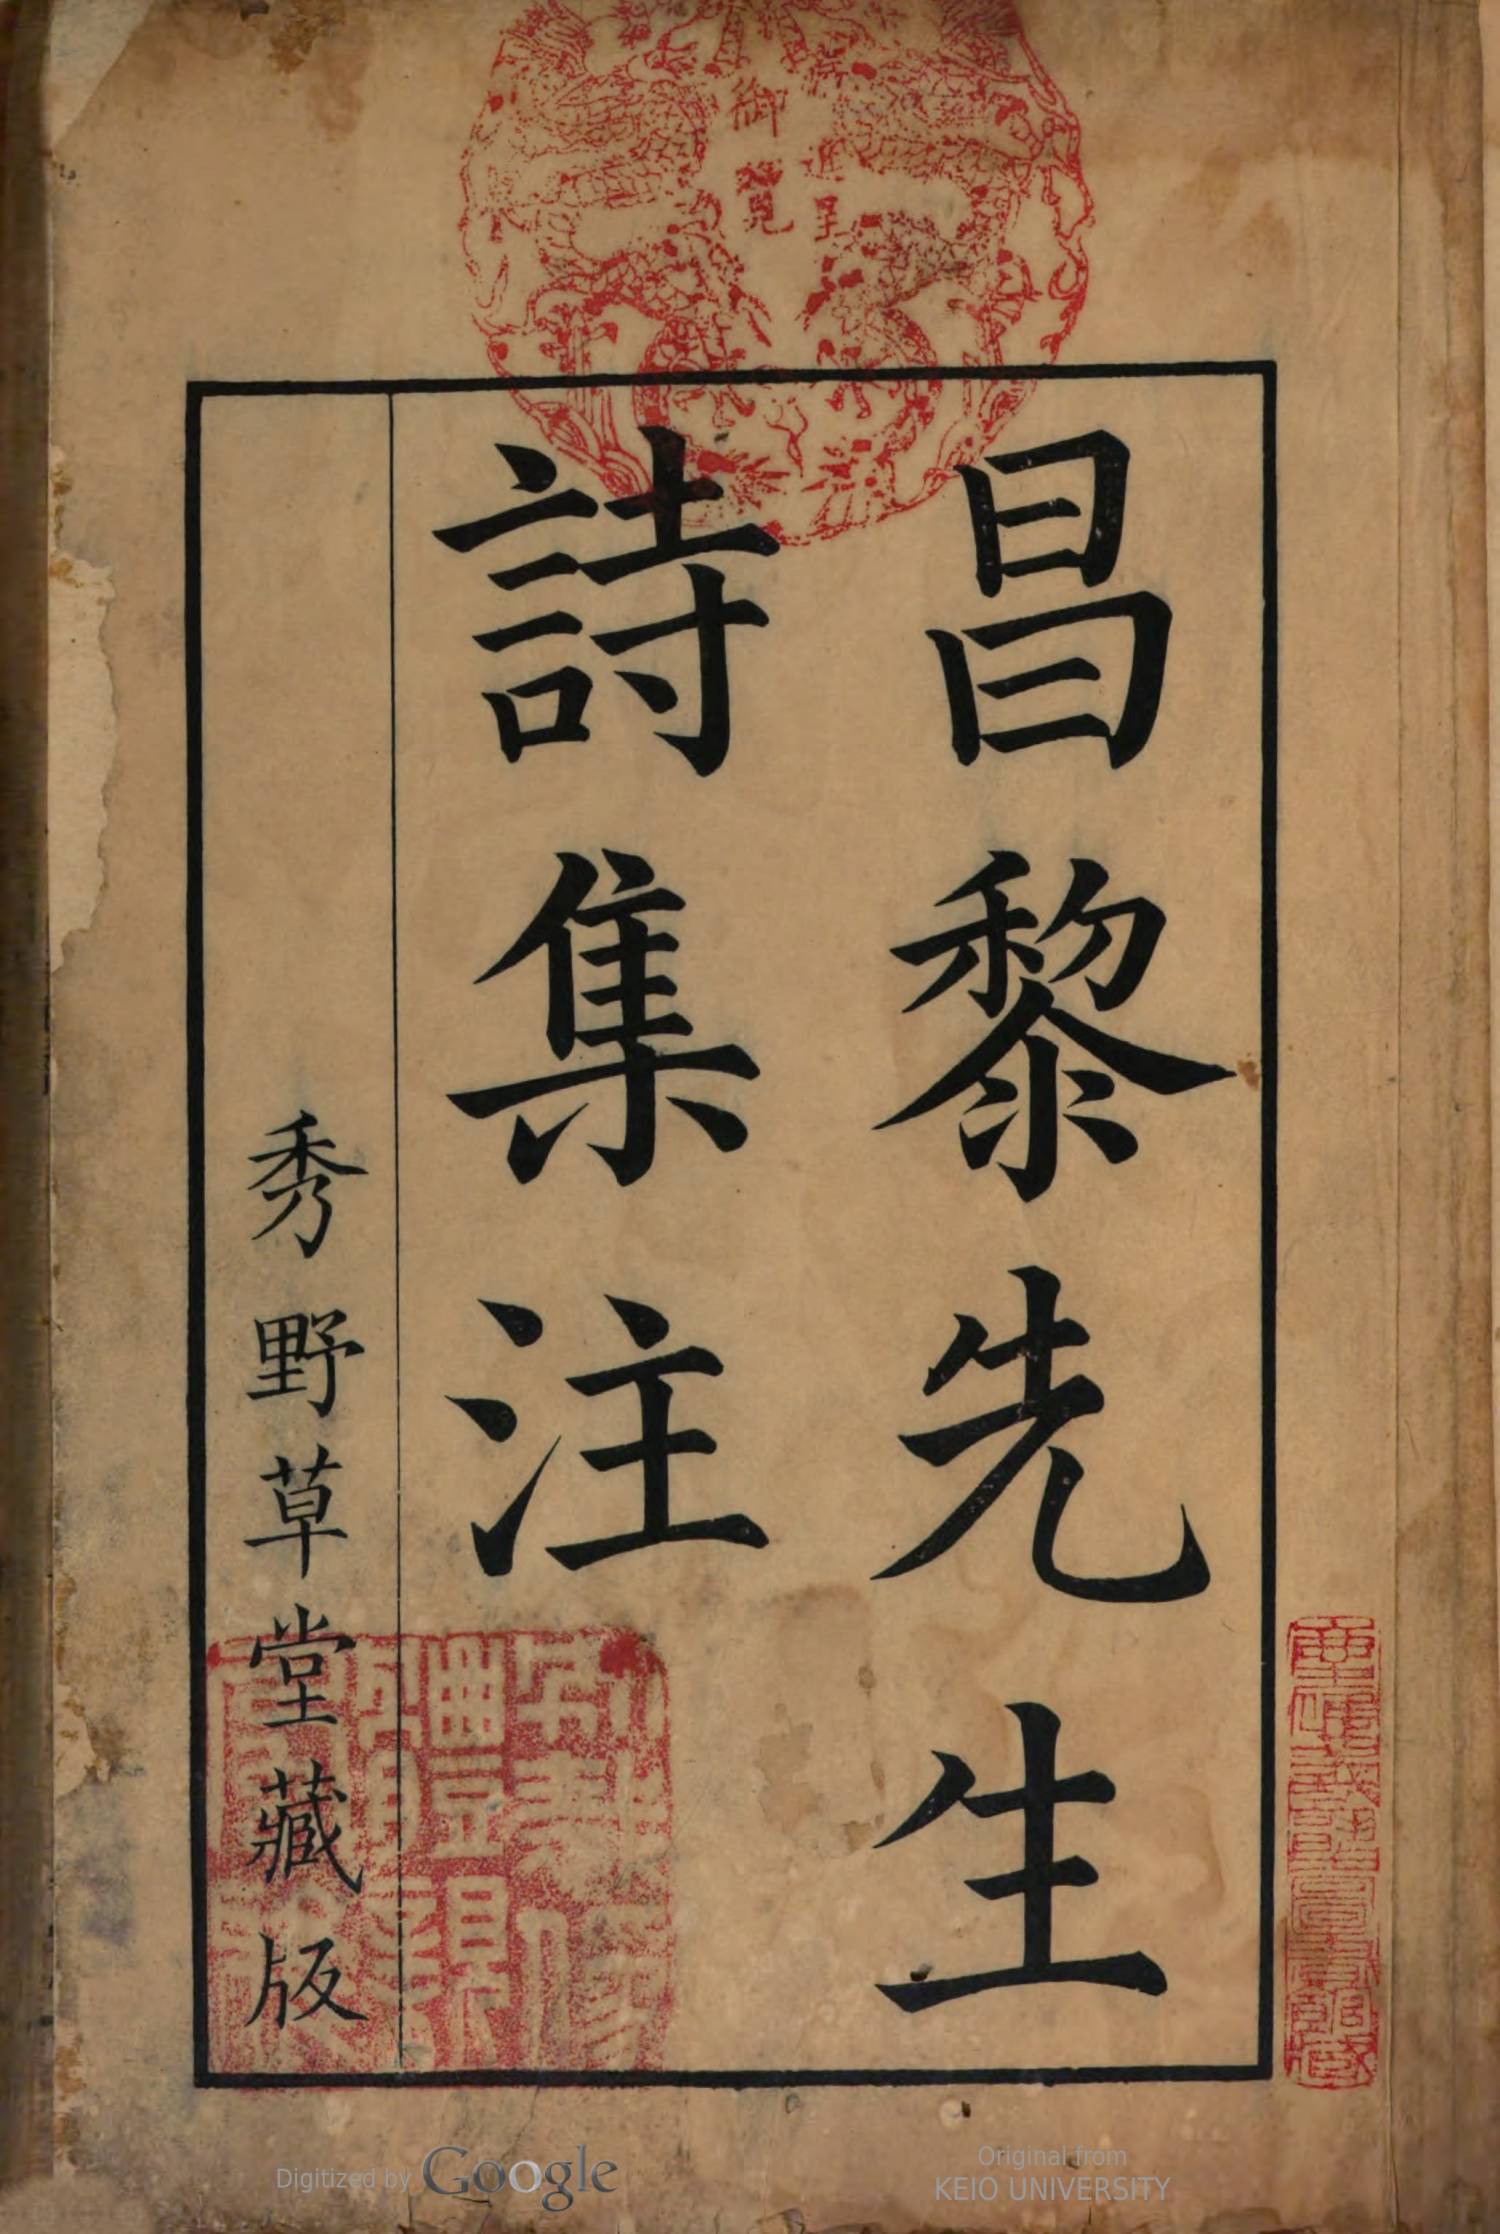 昌黎先生
詩集注
秀野草堂藏版
進呈
御覽
Digitized by Google
Original from
KEIO UNIVERSITY